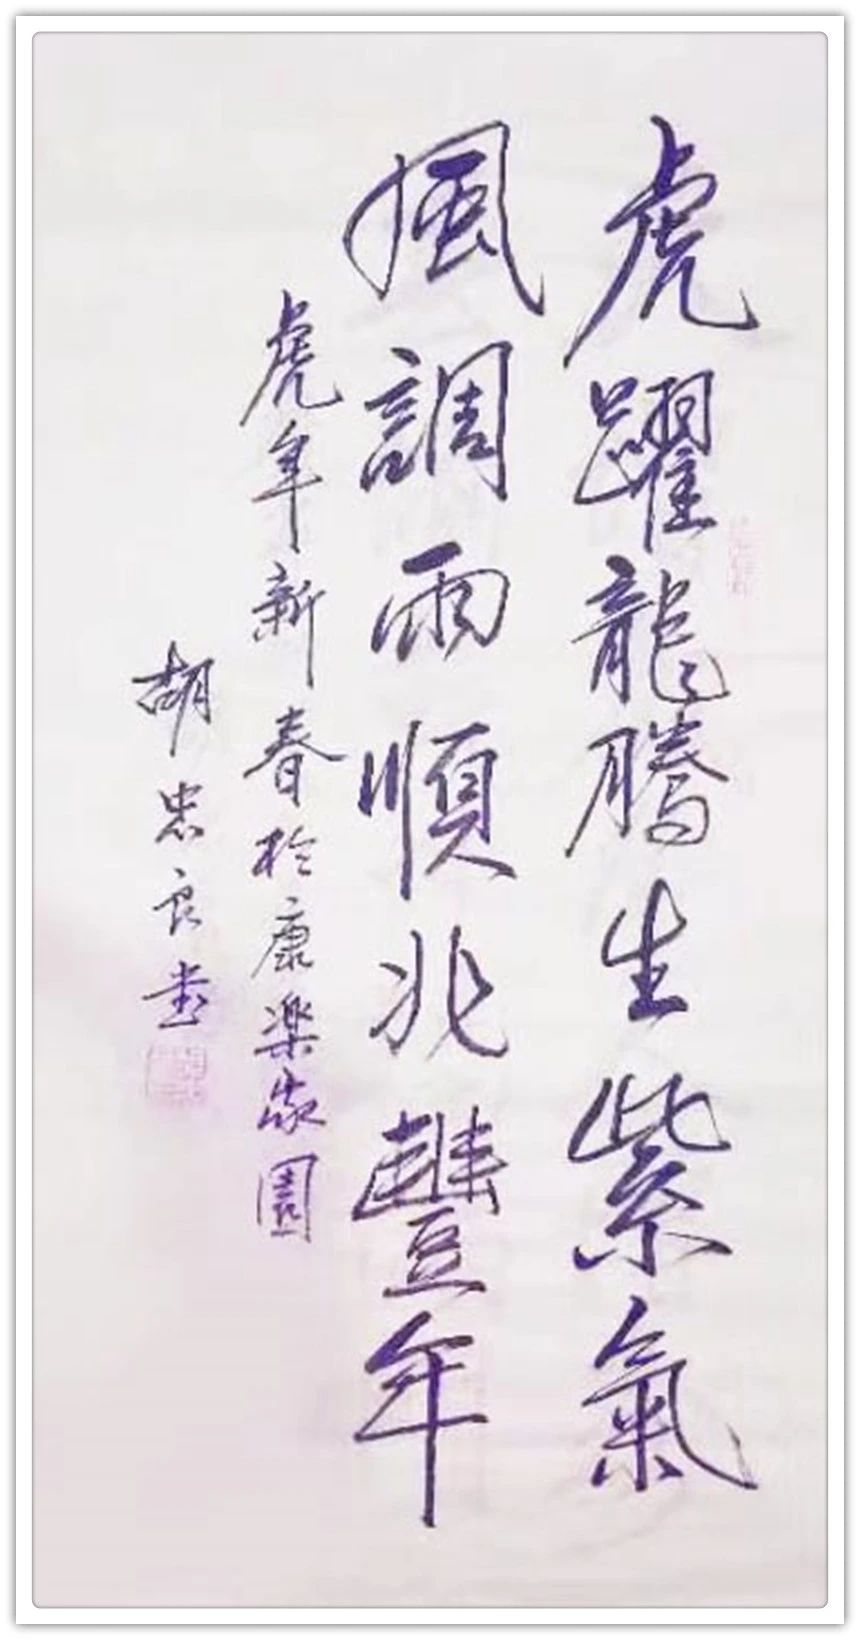 虎躍龍騰生紫氣
風調雨順兆豐年
虎年新春於康樂家園
胡忠良書